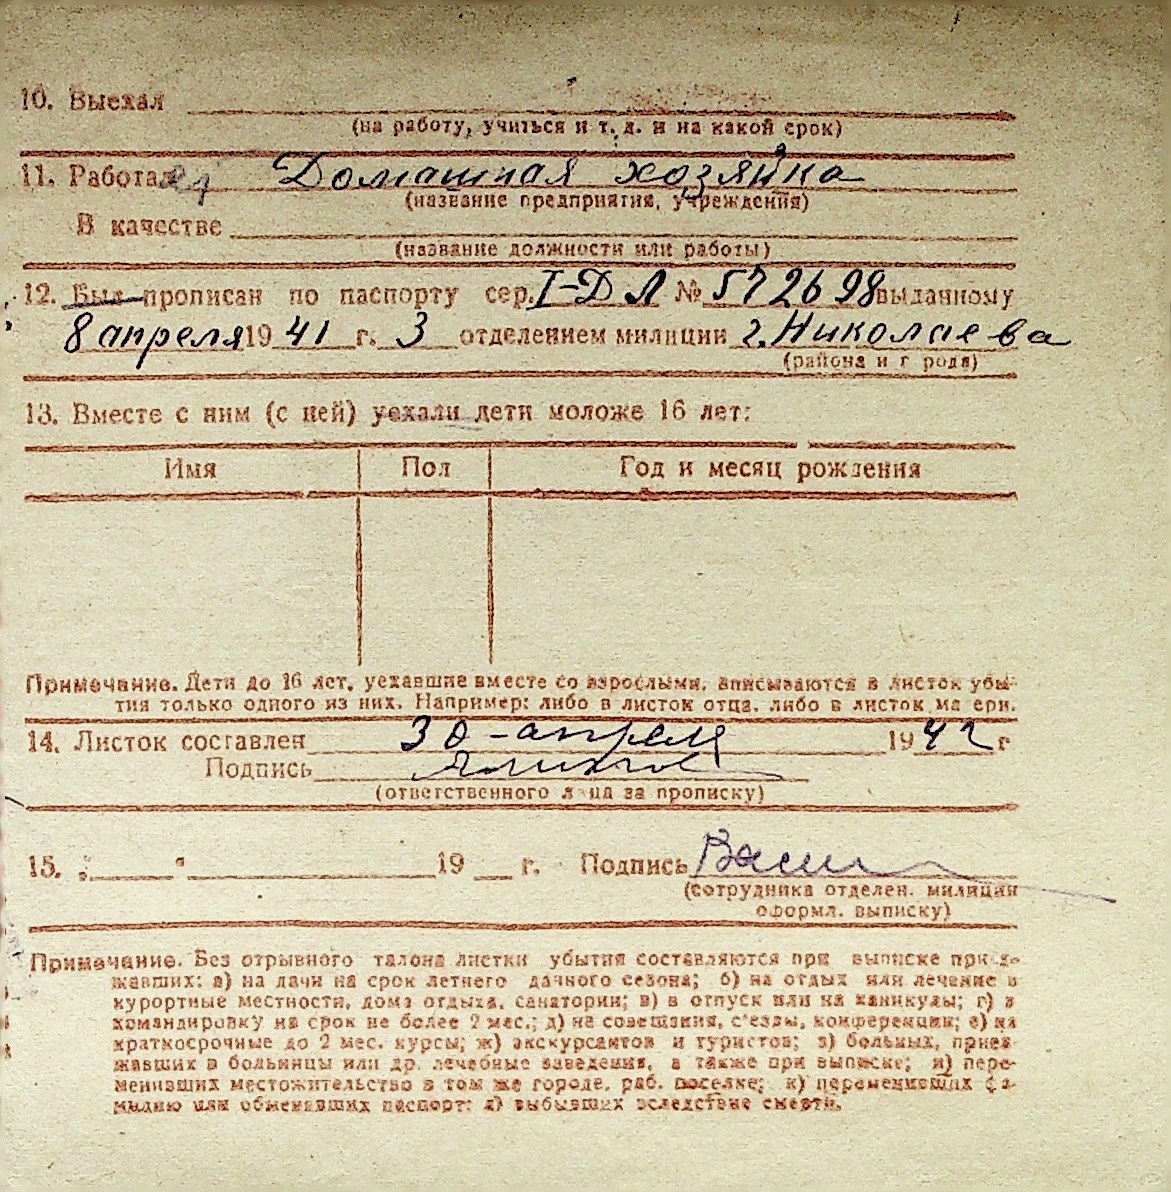 10. Выехал
(на работу, учиться и т. д. и на какой срок)
11. Работал Домашная хозяйка
(название предприятия, учреждения)
В качестве
(название должности или работы)
12. Был прописан по паспорту сер. I-ДЛ № 572698 выданному
8 апреля 19 41 г. 3 отделением милиции г. Николаева
(района и г рода)
13. Вместе с ним (с ней) уехали дети моложе 16 лет:
Имя Пол Год и месяц рождения
Примечание. Дети до 16 лет, уехавшие вместе со взрослыми, вписываются в листок убы-
тия только одного из них. Например: либо в листок отца, либо в листок ма ери.
14. Листок составлен 30 - апреля 19 42 г
Подпись
(ответственного л ца за прописку)
15. 19 г. Подпись
(сотрудника отделен. милиции
оформл. выписку)
Примечание. Без отрывного талона листки убытия составляются при выписке приез-
жавших: а) на дачи на срок летнего дачного сезона; б) на отдых или лечение в
курортные местности, дома отдыха, санатории; в) в отпуск или на каникулы; г) в
командировку на срок не более 2 мес.; д) на совещания, с'езды, конференции; е) на
краткосрочные до 2 мес. курсы; ж) экскурсантов и туристов; з) больных, приез-
жавших в больницы или др. лечебные заведения, а также при выписке; и) пере-
менивших местожительство в том же городе, раб. поселке; к) переменивших фа-
милию или обменявших паспорт: л) выбывших вследствие смерти.